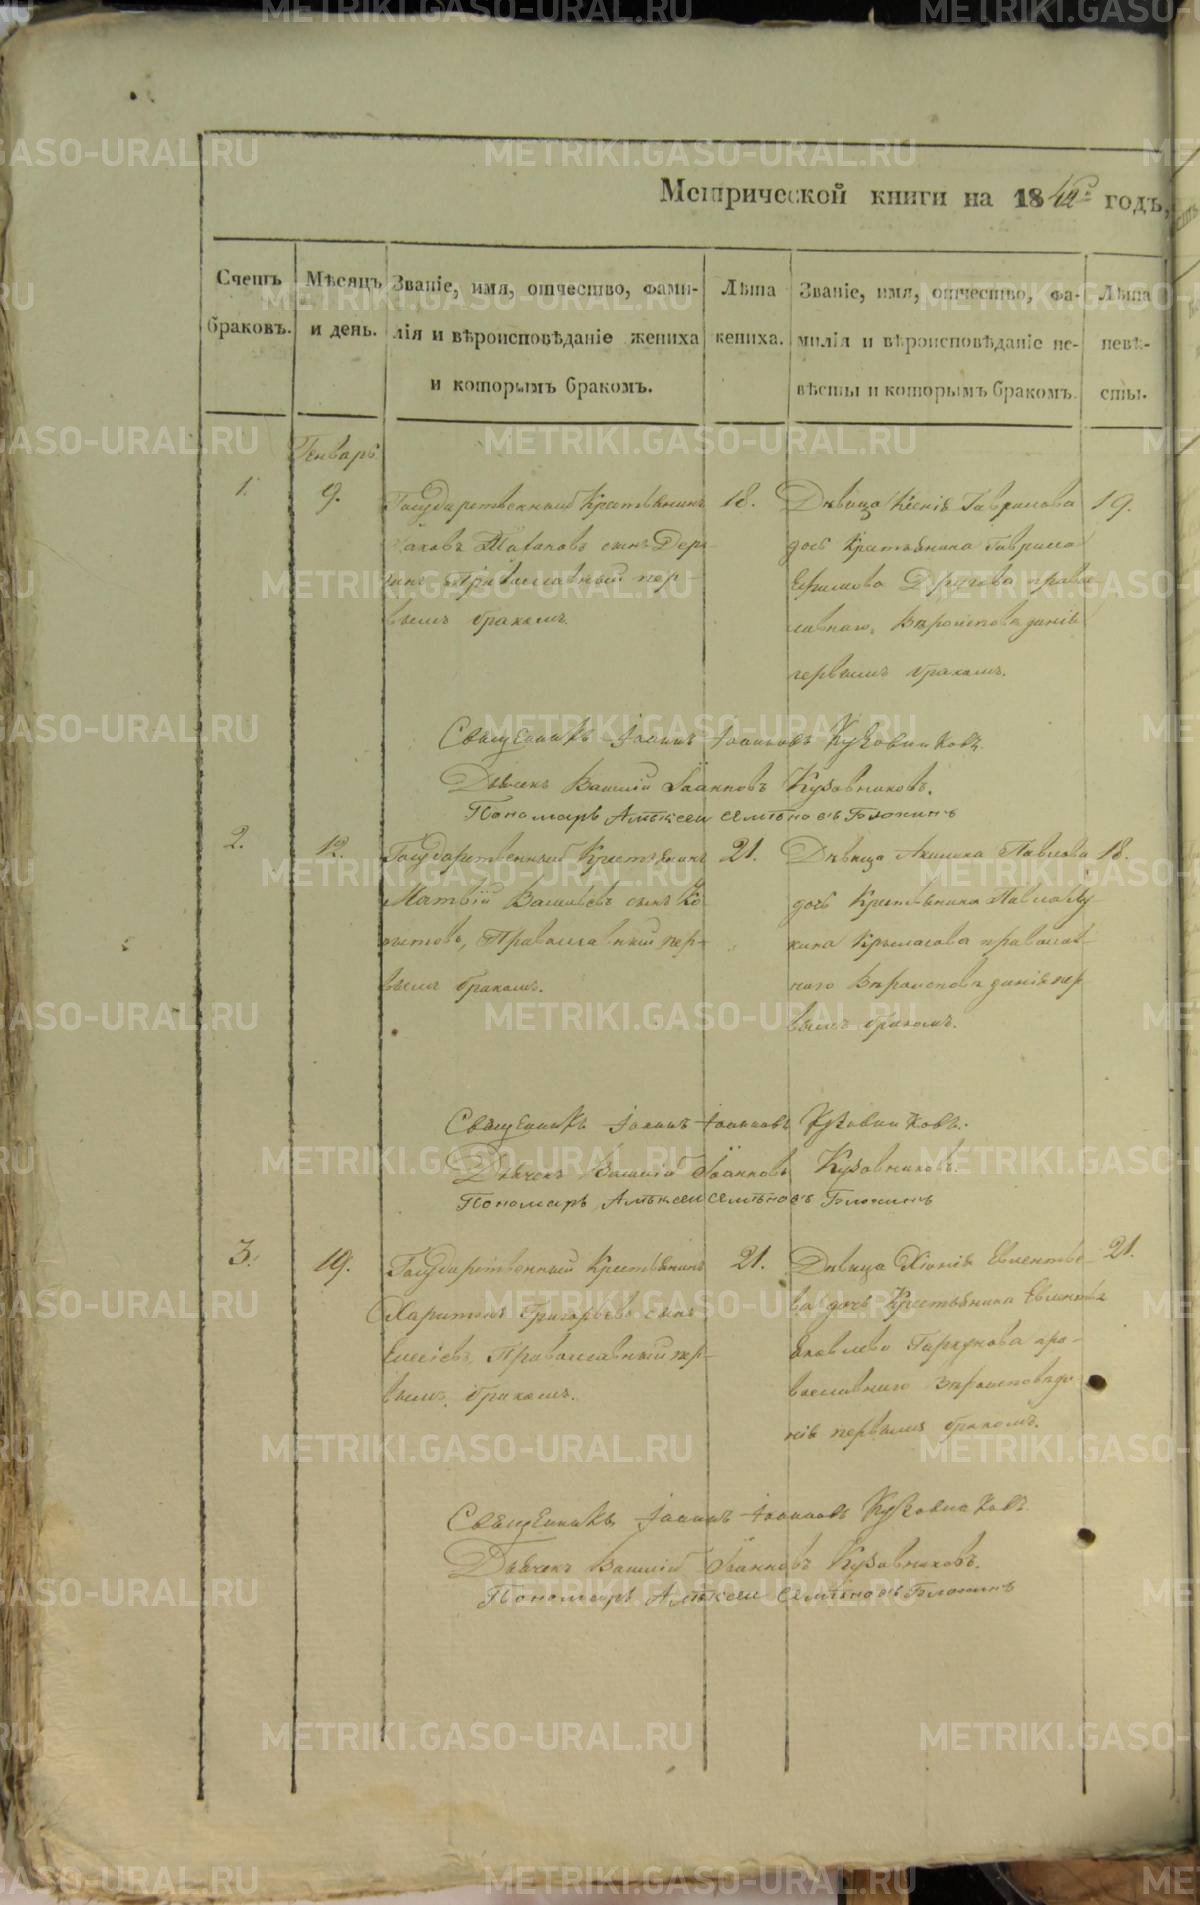 METRIKI.GASO-URAL.RU
Метрической книги на 1842 годъ,
Счетъ браковъ.
Мѣсяцъ и день.
Званіе, имя, отчество, фами-
лія и вѣроисповѣданіе жениха
и которымъ бракомъ.
Лѣта
жениха.
Званіе, имя, отчество, фа-
милія и вѣроисповѣданіе не-
вѣсты и которымъ бракомъ.
Лѣта
невѣ-
сты.
Генварь
1.
9.
Государственный Крестьянинъ
сынъ
Православный пер-
вымъ бракомъ.
18.
Дѣвица Ксенія Гаврилова
дочь Крестьянина Гаврила
Ефимова православ-
лавнаго Вѣроисповѣданія
первымъ бракомъ.
19.
Священникъ Іоаннъ Іоанновъ Кузовниковъ.
Дьячекъ Василій Іоанновъ Кузовниковъ.
Пономарь Алѣксеи Семѣновъ
2.
12.
Государственный Крестьянинъ
Матвій Васильевъ сынъ Ко-
Православный пер-
вымъ бракомъ.
21.
Дѣвица Акилина Павлова
дочь Крестьянина Павла Лу-
кина православ-
наго Вѣроисповѣданія пер
вымъ бракомъ.
18.
Священникъ Іоаннъ Іоанновъ Кузовниковъ.
Дьячекъ Василій Іоанновъ Кузовниковъ.
Пономарь Алѣксеи Семѣновъ
3.
19.
Государственный Крестьянинъ
Харитонъ Григорьевъ сынъ
Православный пер-
вымъ бракомъ.
21.
Дѣвица Хіонія Евлентье-
ва дочь Крестьянина Евлентья
Яковлева пра-
вославнаго Вѣроисповѣда
нія первымъ бракомъ.
21.
Священникъ Іоаннъ Іоанновъ Кузовниковъ
Дьячекъ Василій Іоанновъ Кузовниковъ.
Пономарь Алѣксеи Семѣновъ